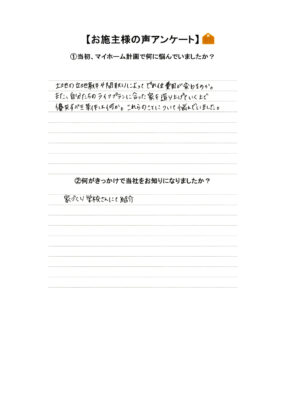 【お施主様の声アンケート】
①当初、マイホーム計画で何に悩んでいましたか？
土地の立地条件や間取りによってどれ位費用が変わるのか。
また、自分たちのライフプランに合った家を造り上げていく上で
優先すべき条件は何か。これらのことについて悩んでいました。
②何がきっかけで当社をお知りになりましたか？
家づくり学校さんにて紹介